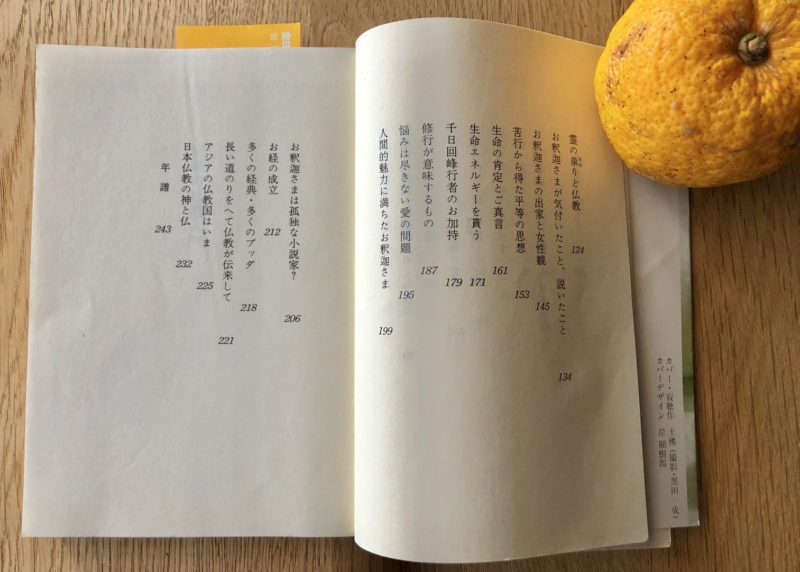 霊の祟りと仏教 124
お釈迦さまが気付いたこと、説いたこと 134
お釈迦さまの出家と女性観 145
苦行から得た平等の思想 153
生命の肯定とご真言 161
生命エネルギーを貰う 171
千日回峰行者のお加持 179
修行が意味するもの 187
悩みは尽きない愛の問題 195
人間的魅力に満ちたお釈迦さま 199
お釈迦さまは孤独な小説家? 206
お経の成立 212
多くの経典・多くのブッダ 218
長い道のりをへて仏教が伝来して 221
アジアの仏教国はいま 225
日本仏教の神と仏 232
年譜 243
カバー・寂聴作 土佛(撮影・黒田一成)
カバーデザイン 岸顯樹郎